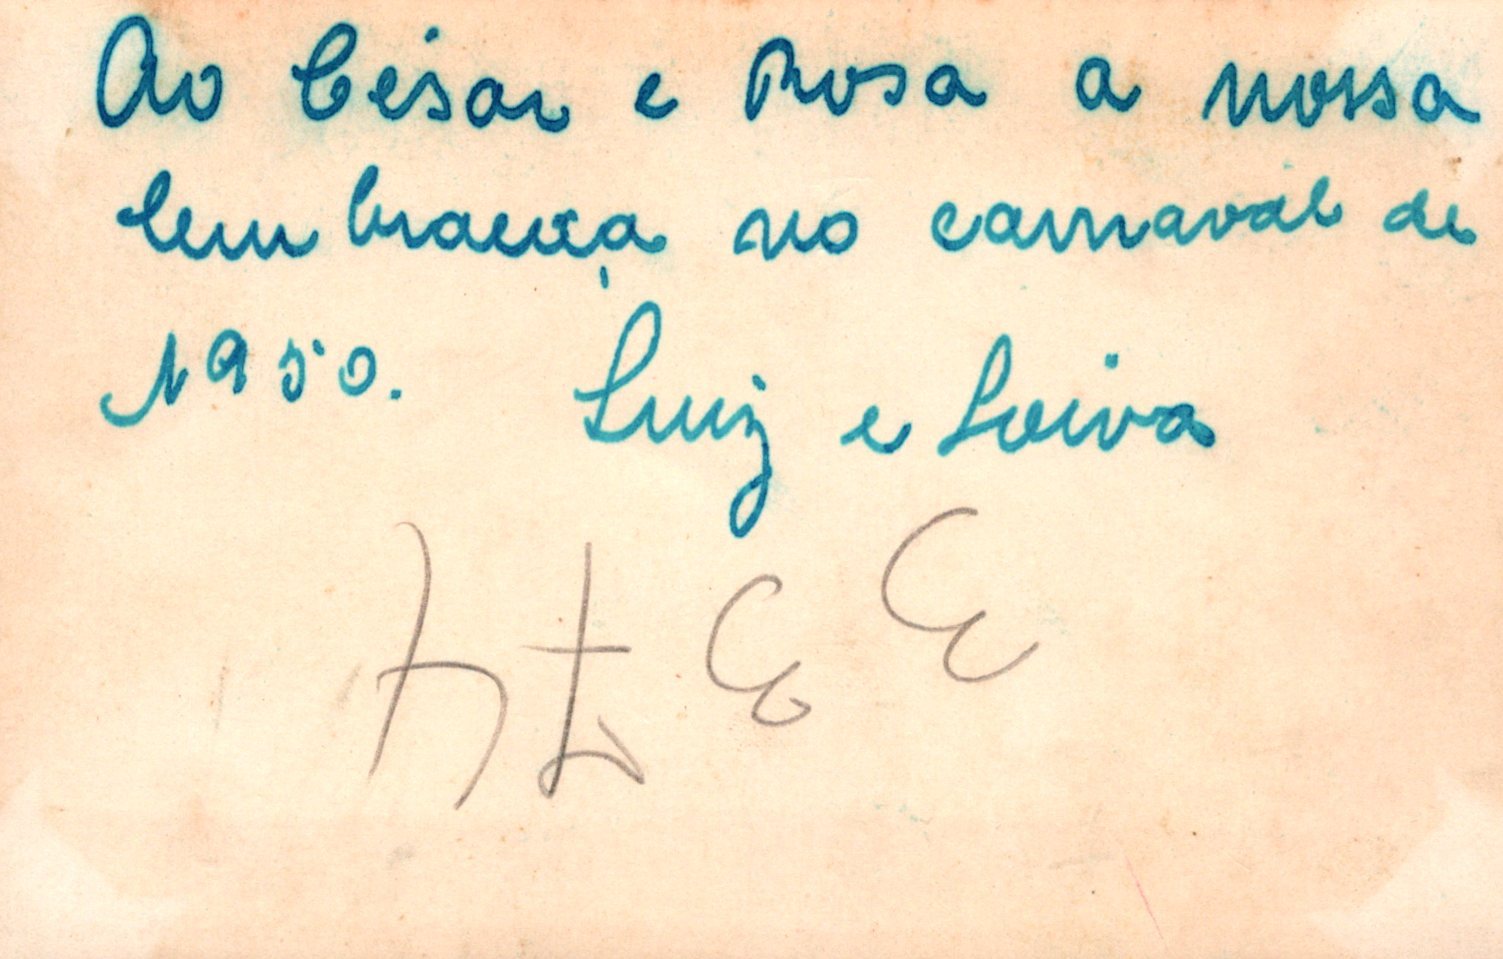 Ao César e Rosa a nossa
lembrança no carnaval de
1950.   Luiz e Loiva
3374